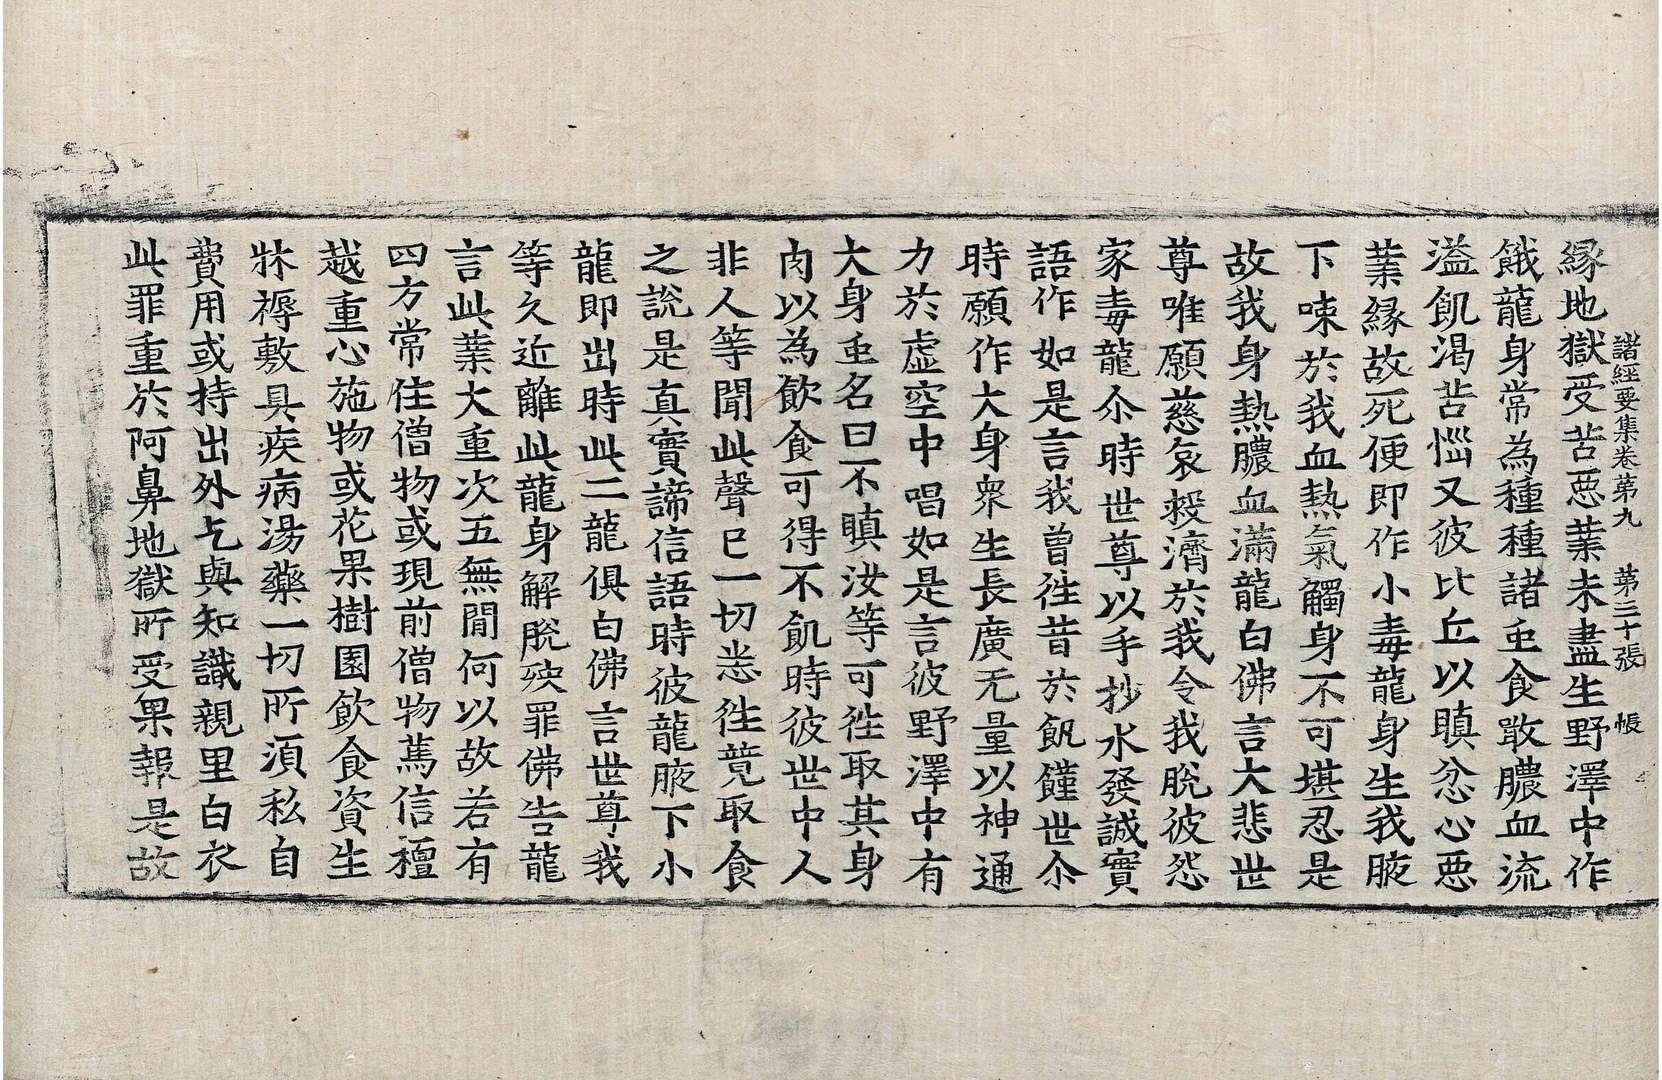 諸經要集卷第九　第三十張　帳
緣地獄受苦惡業未盡生野澤中作
餓龍身常為種種諸虫食噉膿血流
溢飢渴苦惱又彼比丘以瞋忿心惡
業緣故死便即作小毒龍身生我腋
下唼於我血熱氣觸身不可堪忍是
故我身熱膿血滿龍白佛言大悲世
尊唯願慈哀救濟於我令我脫彼怨
家毒龍尒時世尊以手抄水發誠實
語作如是言我曾往昔於飢饉世尒
時願作大身衆生長廣无量以神通
力於虛空中唱如是言彼野澤中有
大身虫名曰不瞋汝等可往取其身
肉以為飲食可得不飢時彼世中人
非人等聞此聲已一切悉往競取食
之說是真實諦信語時彼龍腋下小
龍即出時此二龍俱白佛言世尊我
等久近離此龍身解脫殃罪佛告龍
言此業大重次五無間何以故若有
四方常住僧物或現前僧物篤信檀
越重心施物或花果樹園飲食資生
牀褥敷具疾病湯藥一切所須私自
費用或持出外乞與知識親里白衣
此罪重於阿鼻地獄所受果報是故